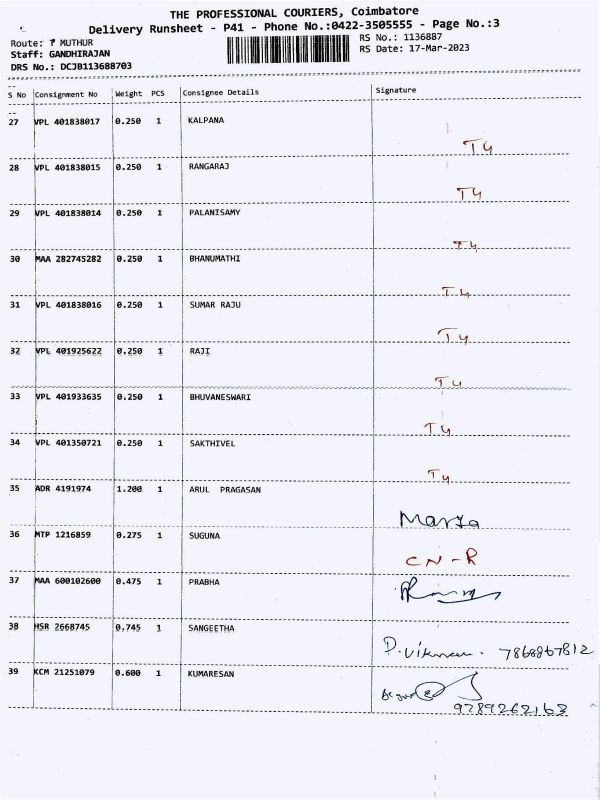 THE PROFESSIONAL COURIERS, Coimbatore
Delivery Runsheet - P41 - Phone No.:0422-3505555 - Page No.:3
Route: T MUTHUR
RS No.: 1136887
Staff: GANDHIRAJAN
RS Date: 17-Mar-2023
DRS No.: DCJB113688703
S No Consignment No Weight PCS Consignee Details Signature
27 VPL 401838017 0.250 1 KALPANA
T4
28 VPL 401838015 0.250 1 RANGARAJ
T4
29 VPL 401838014 0.250 1 PALANISAMY
T4
30 MAA 282745282 0.250 1 BHANUMATHI
T4
31 VPL 401838016 0.250 1 SUMAR RAJU
T4
32 VPL 401925622 0.250 1 RAJI
T4
33 VPL 401933635 0.250 1 BHUVANESWARI
T4
34 VPL 401350721 0.250 1 SAKTHIVEL
T4
35 ADR 4191974 1.200 1 ARUL PRAGASAN
36 MTP 1216859 0.275 1 SUGUNA
CN-R
37 MAA 600102600 0.475 1 PRABHA
38 HSR 2668745 0.745 1 SANGEETHA
7868867812
39 KCM 21251079 0.600 1 KUMARESAN
9789262163